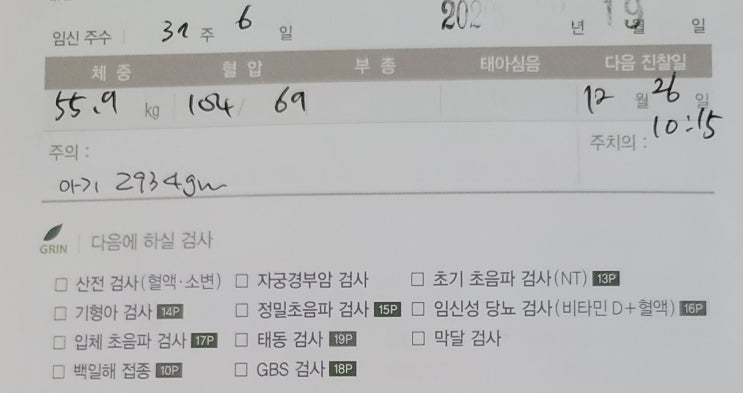 임신 주수 37 주 6 일 202 년 19 월 일
체 중 혈 압 부 종 태아심음 다음 진찰일
55.9 kg 104 / 69 12 월 26 일
10:15
주의 : 주치의 :
아기 2934gm
GRIN 다음에 하실 검사
□ 산전 검사(혈액·소변) □ 자궁경부암 검사 □ 초기 초음파 검사(NT) 13P
□ 기형아 검사 14P □ 정밀초음파 검사 15P □ 임신성 당뇨 검사(비타민 D+혈액) 16P
□ 입체 초음파 검사 17P □ 태동 검사 19P □ 막달 검사
□ 백일해 접종 10P □ GBS 검사 18P